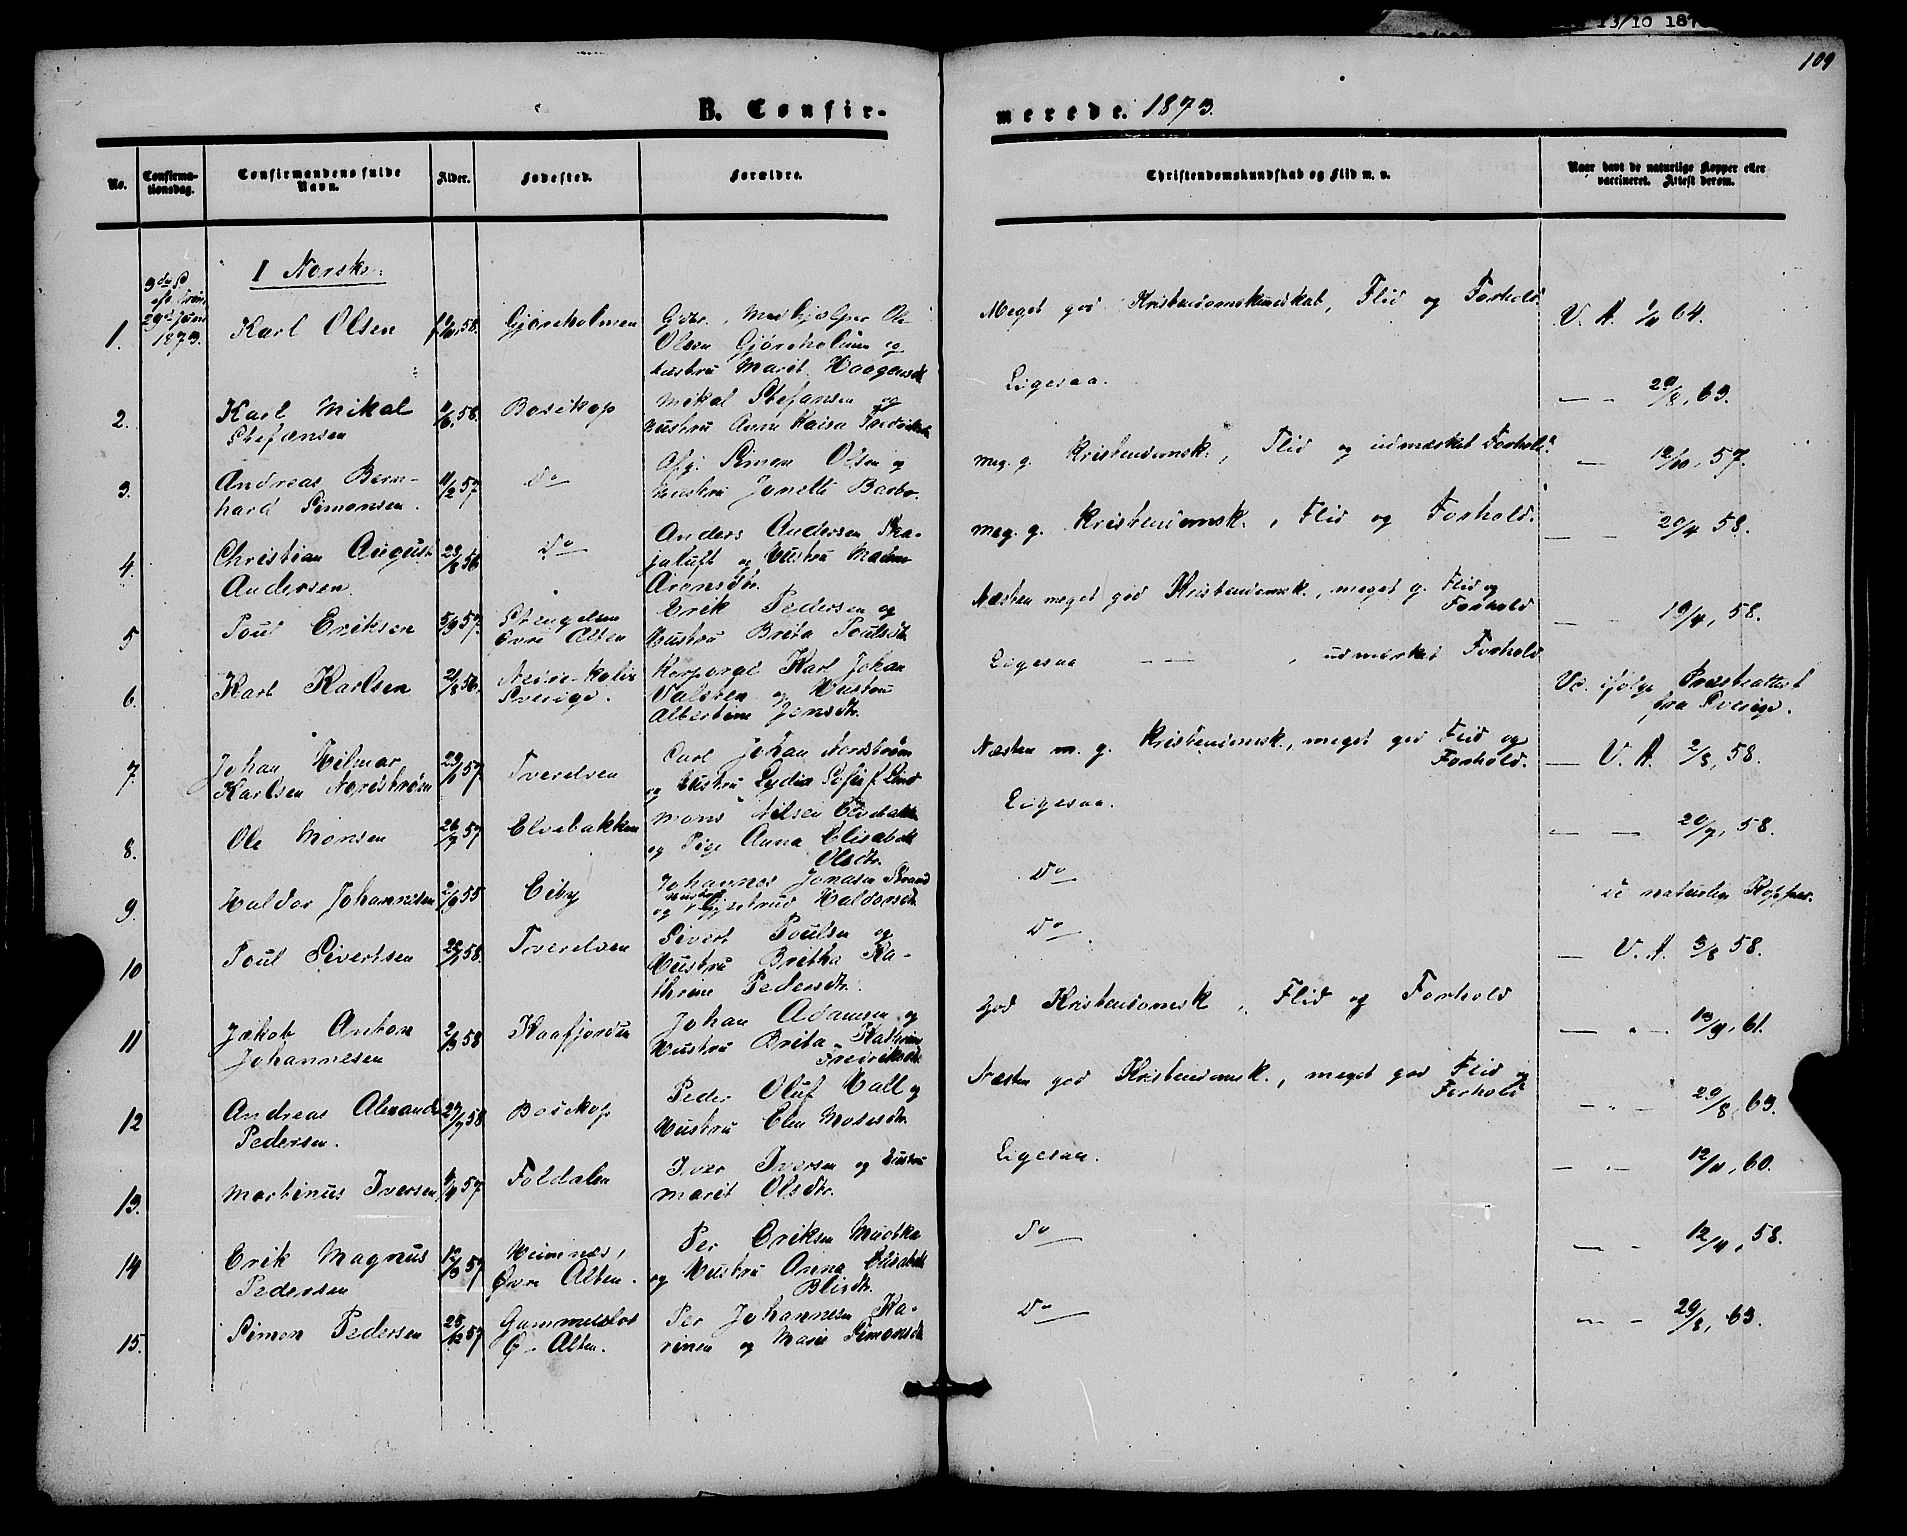 13/10 187
109
B. Confir-
merede. 1873.
No.
Confirma-
tionsdag.
Confirmandens fulde
Navn.
Alder.
Fødested.
Forældre.
Christendomskundskab og Flid m. v.
Naar havt de naturlige Kopper eller
vaccineret. Attest derom.
I Norske:
3die S.
eft. Trin.
29de Juni
1873.
1. Karl Olsen 58. Gjøreholmen
Gbr. Ole
Olsen Gjøreholmen og
Hustru Marit Haagensdt.
Meget god Kristendomskundskab, Flid og Forhold. V. A. 64.
2. Karl Mikal
Stefansen
58. Bosekop
Mikal Stefansen og
Hustru Anne Kaisa Fredriksdt.
Ligesaa. — — 29/8, 63.
3. Andreas Bern-
hard Simonsen.
11/2 57. Do
Simon Olsen og
Hustru Jonette
Meg. g. Kristendomsk., Flid og udmærket Forhold. — 12/10, 57.
4. Christian August
Andersen.
23/8 56 Do
Anders Andersen Ska-
jaluft og Hustru
Arensdtr.
Meg. g. Kristendomsk., Flid og Forhold. — — 20/4 58.
5 Poul Eriksen 5/9 57. Stengelsen
Øvre Alten
Erik Pedersen og
Hustru Brita Poulsdt.
Næsten meget god Kristendomsk., meget g. Flid og
Forhold
— — 19/4, 58.
6. Karl Karlsen 21/8 56.
Sverige.
Karl Johan
og Hustru
Albertine Jensdtr.
Ligesaa — — , udmærket Forhold
Va. ifølge Præsteattest
fra Sverige.
7. Johan Hilmar
Karlsen Nordstrøm
57. Tverelven
Carl Johan Nordstrøm
og Hustru Lydia Sofie f. Lind
Næsten m. g. Kristendomsk., meget god Flid og
Forhold.
— V. A. 2/8, 58.
8. Ole Monsen 26/7 57 Elvebakken
Mons Nilsen Elvebakken
og Pige Anna Elisabeth
Olsdtr.
Ligesaa. — — 20/7, 58.
9 Haldor Johannesen 2/9 55 Eiby
Johannes Jonasen Strand
og Hustru Gjertrud Haldorsdt.
Do
naturlige Kopper.
10 Poul Sivertsen 58. Tverelven
Sivert Poulsen og
Hustru Britha Ka-
thrine Pedersdtr.
Do — V. A. 3/8 58.
11 Jakob Anton
Johannesen
2/3 58 Kaafjorden
Johan Adamsen og
Hustru Brita Kathrine
Fredriksdt.
God Kristendomsk., Flid og Forhold — " — 13/9, 61.
12 Andreas Alexander
Pedersen.
58 Bosekop
Peder Oluf Hall og
Hustru Elen Mosesdtr.
Næsten god Kristendomsk., meget god Flid og
Forhold
— " — 29/8, 63.
13. Martinus Iversen 57. Foldalen
Iver Iversen og Hustru
Marit Olsdtr.
Ligesaa. — " — 12/11, 60.
14 Erik Magnus
Pedersen
12/3 57
Øvre Alten.
Per Eriksen Muotka
og Hustru Anna Elisabeth
Do — - 12/4, 58.
15. Simon Pedersen 25/12 57 Gammelslot
Ø. Alten.
Per Johannesen Ka-
rinen og Marie Simonsdt.
Do — - 29/8, 63.